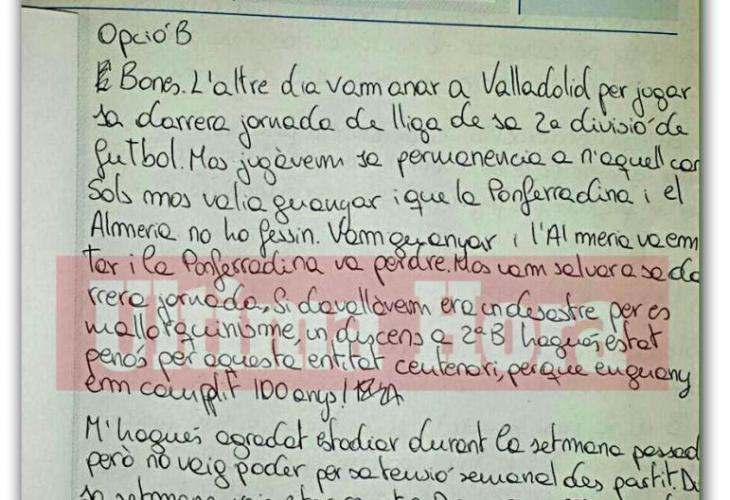 Opció B
Bones. L'altre dia vam anar a Valladolid per jugar
sa darrera jornada de lliga de sa 2a divisió de
futbol. Mos jugàvem sa permanencia a n'aquell cam
Sols mos valia guanyar i que la Ponferradina i el
Almeria no ho fessin. Vam guanyar i l'Almeria va em
tar i la Ponferradina va perdre. Mos vam salvar a sa da
rrera jornada, Si davallàvem era un desastre per es
mallorquinisme, un descens a 2ªB hagués estat
penós per aquesta entitat centenari, perque enguany
em complit 100 anys!
M'hagués agradat estudiar durant la setmana passad
però no vaig poder per sa tensió semanal des partit. Du
sa setmana
Ultima Hora